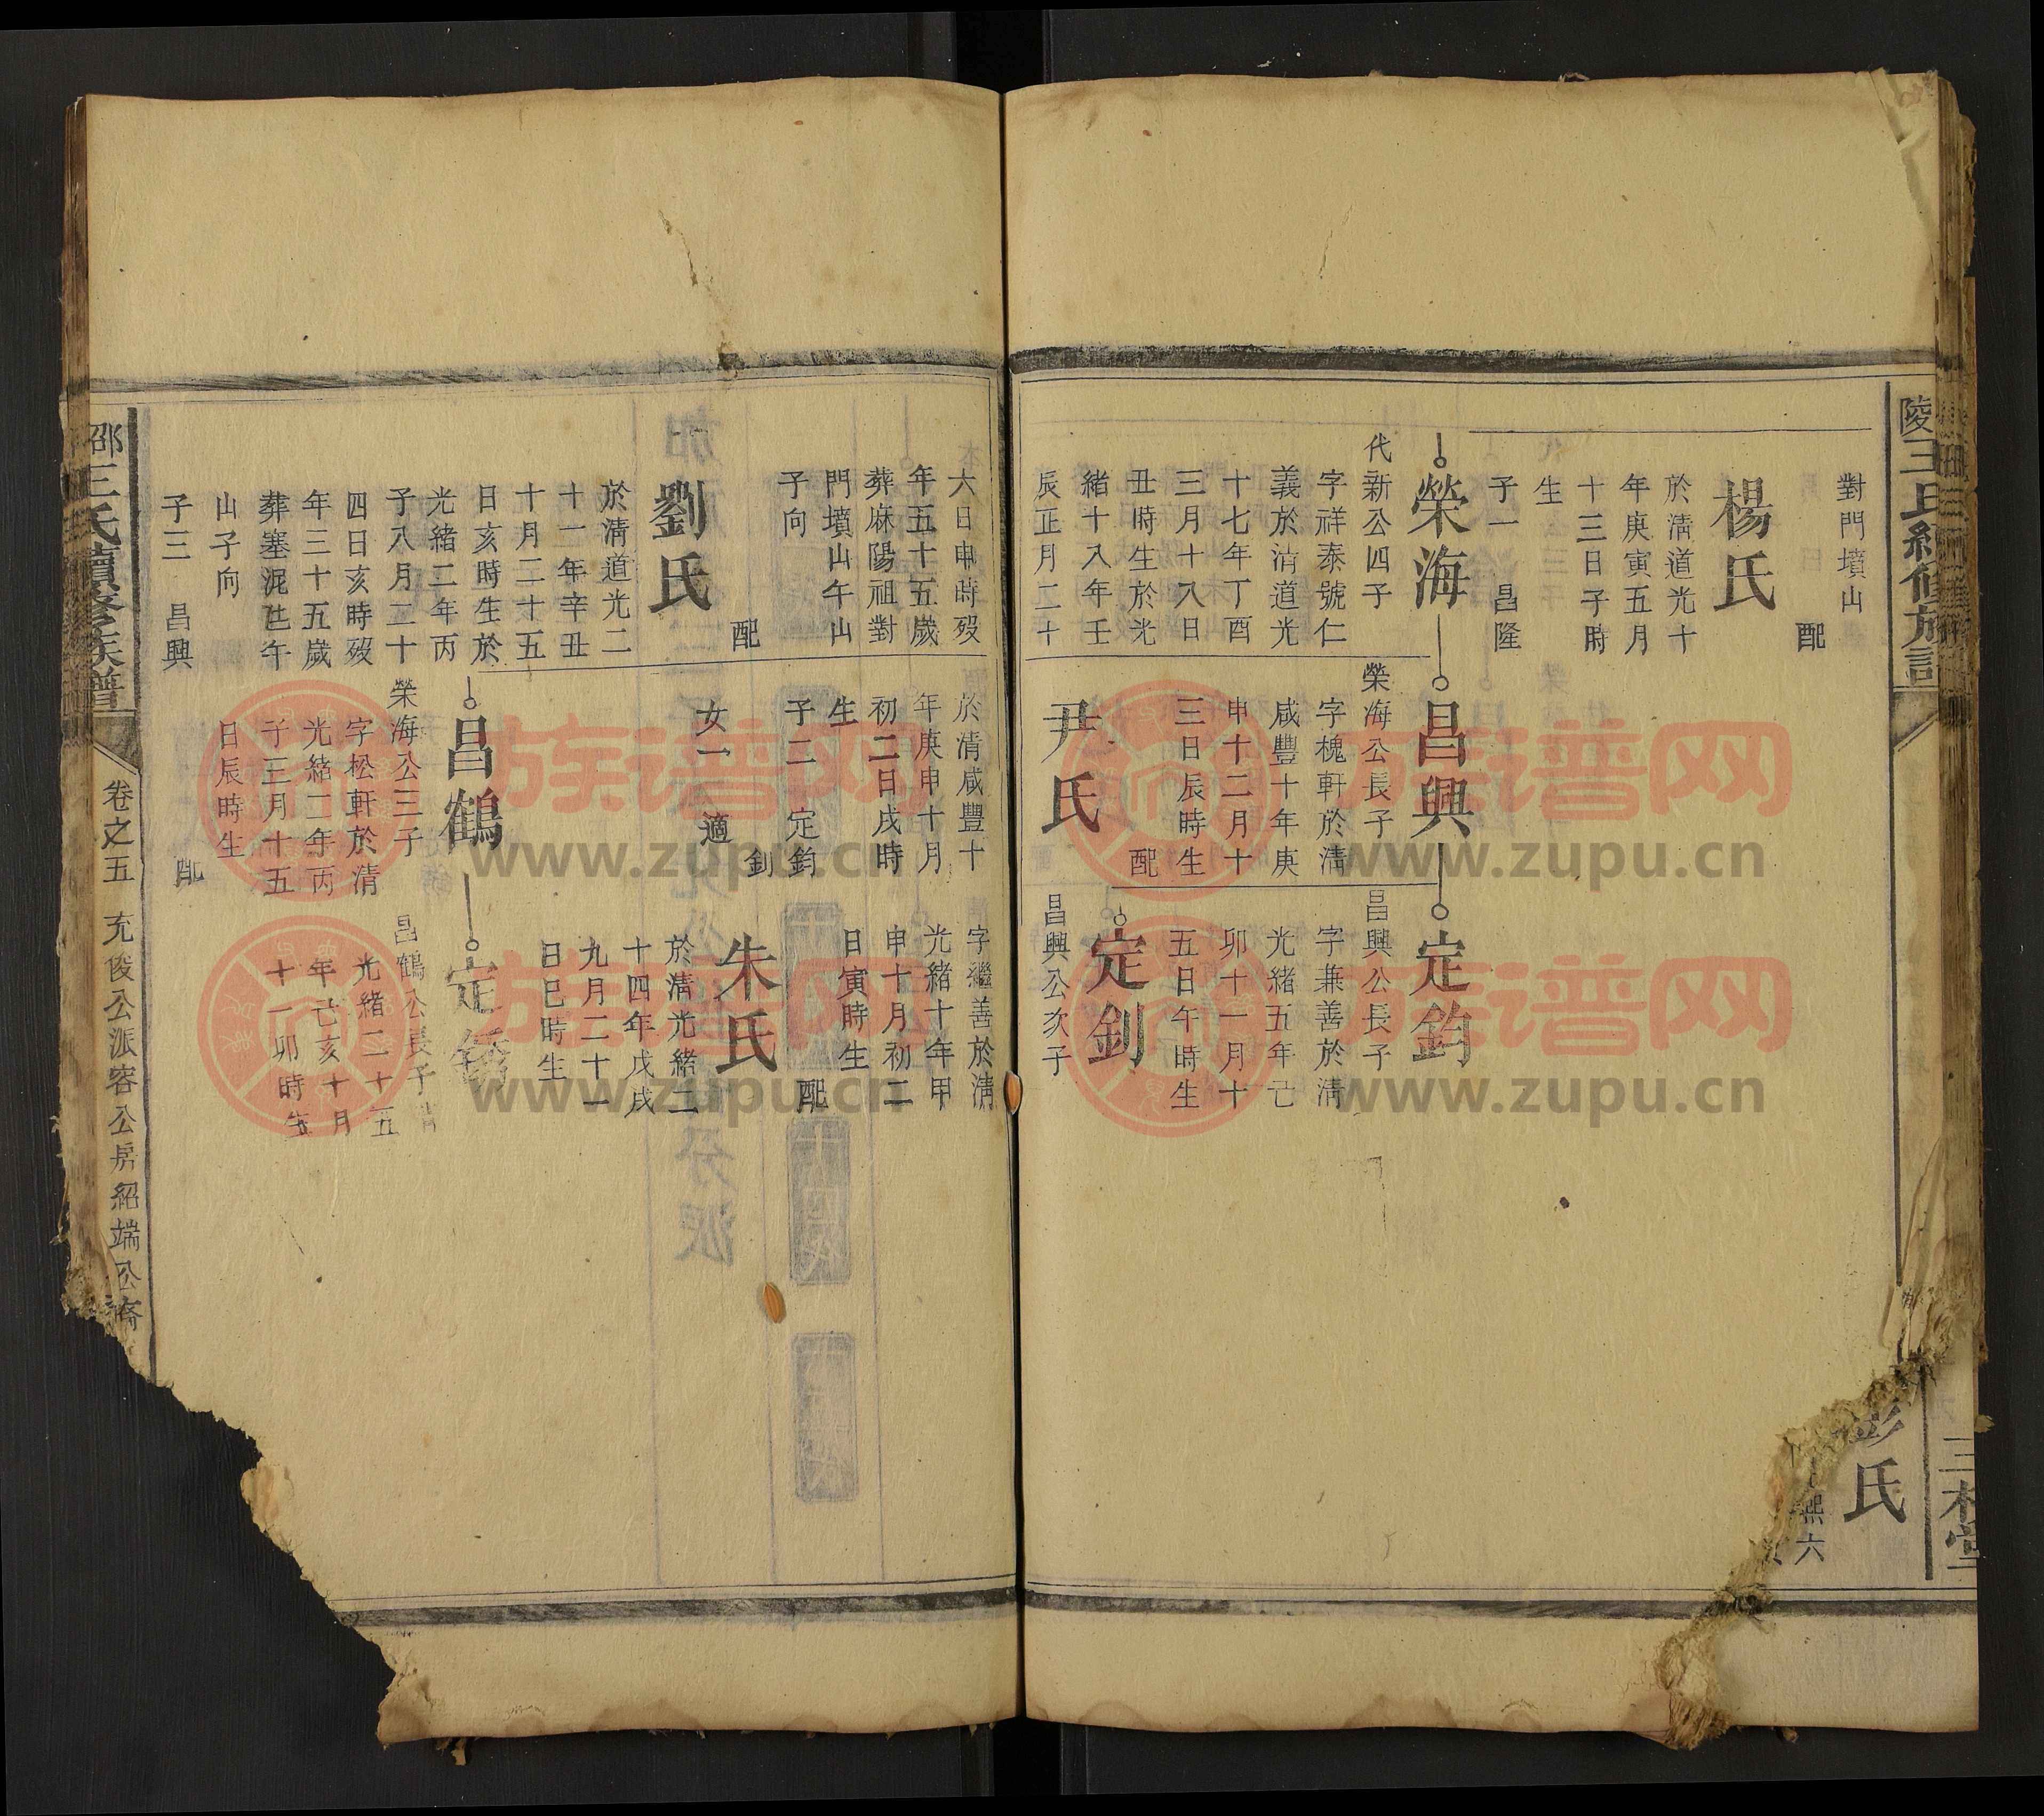 對門墳山
配
楊氏
於淸道光十
年庚寅五月
十三日子時
生
子一 昌隆
榮海
代新公四子
字祥泰號仁
義於淸道光
十七年丁酉
三月十八日
丑時生於光
緒十八年壬
辰正月二十
昌興
榮海公長子
字槐軒於淸
咸豐十年庚
申十二月十
三日辰時生
配
尹氏
定鈞
昌興公長子
字兼善於淸
光緒五年己
卯十一月十
五日午時生
定釗
昌興公次子
彭氏
熙六
三
堂
六日申時歿
年五十五歲
葬麻陽祖對
門墳山午山
子向
配
劉氏
於淸道光二
十一年辛丑
十月二十五
日亥時生於
光緒二年丙
子八月二十
四日亥時歿
年三十五歲
葬塞泥凼午
山子向
子三 昌興
於淸咸豐十
年庚申十月
初二日戌時
生
子二 定鈞
釗
女一 適
昌鶴
榮海公三子
字松軒於淸
光緒二年丙
子三月十五
日辰時生
配
字繼善於淸
光緒十年甲
申十月初二
日寅時生
配
朱氏
於淸光緒二
十四年戊戌
九月二十一
日巳時生
定
昌鶴公長子淸
光緒二十五
年己亥十月
十一卯時生
邵
王氏續修族譜
卷之五 充俊公派容公房紹端公裔
族谱网
www.zupu.cn
族谱网
www.zupu.cn
族谱网
www.zupu.cn
族谱网
www.zupu.cn